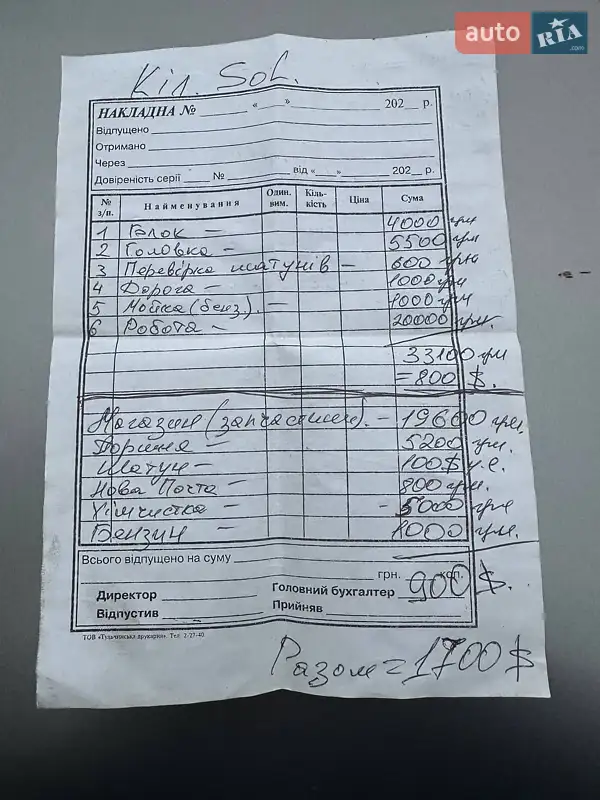 auto RIA .com
Кіл. Sol.
НАКЛАДНА № « » 202 р.
Відпущено
Отримано
Через
Довіреність серії № від « » 202 р.
№ з/п. Найменування Один. вим. Кіль-кість Ціна Сума
1 Блок – 4000 грн
2 Головка – 5500 грн
3 Перевірка шатунів – 600 грн
4 Дорога – 1000 грн
5 Мойка (бенз.) – 1000 грн
6 Робота – 20000 грн.
33100 грн
= 800 $.
Магазин (запчастини). – 19600 грн.
Поршня – 5200 грн.
Шатун – 100$ у.е.
Нова Почта – 800 грн.
Хімчистка – 5000 грн
Бензин – 1000 грн.
Всього відпущено на суму
грн. коп.
900 $.
Директор Головний бухгалтер
Відпустив Прийняв
ТОВ «Тульчинська друкарня». Тел. 2-27-40.
Разом = 1700 $